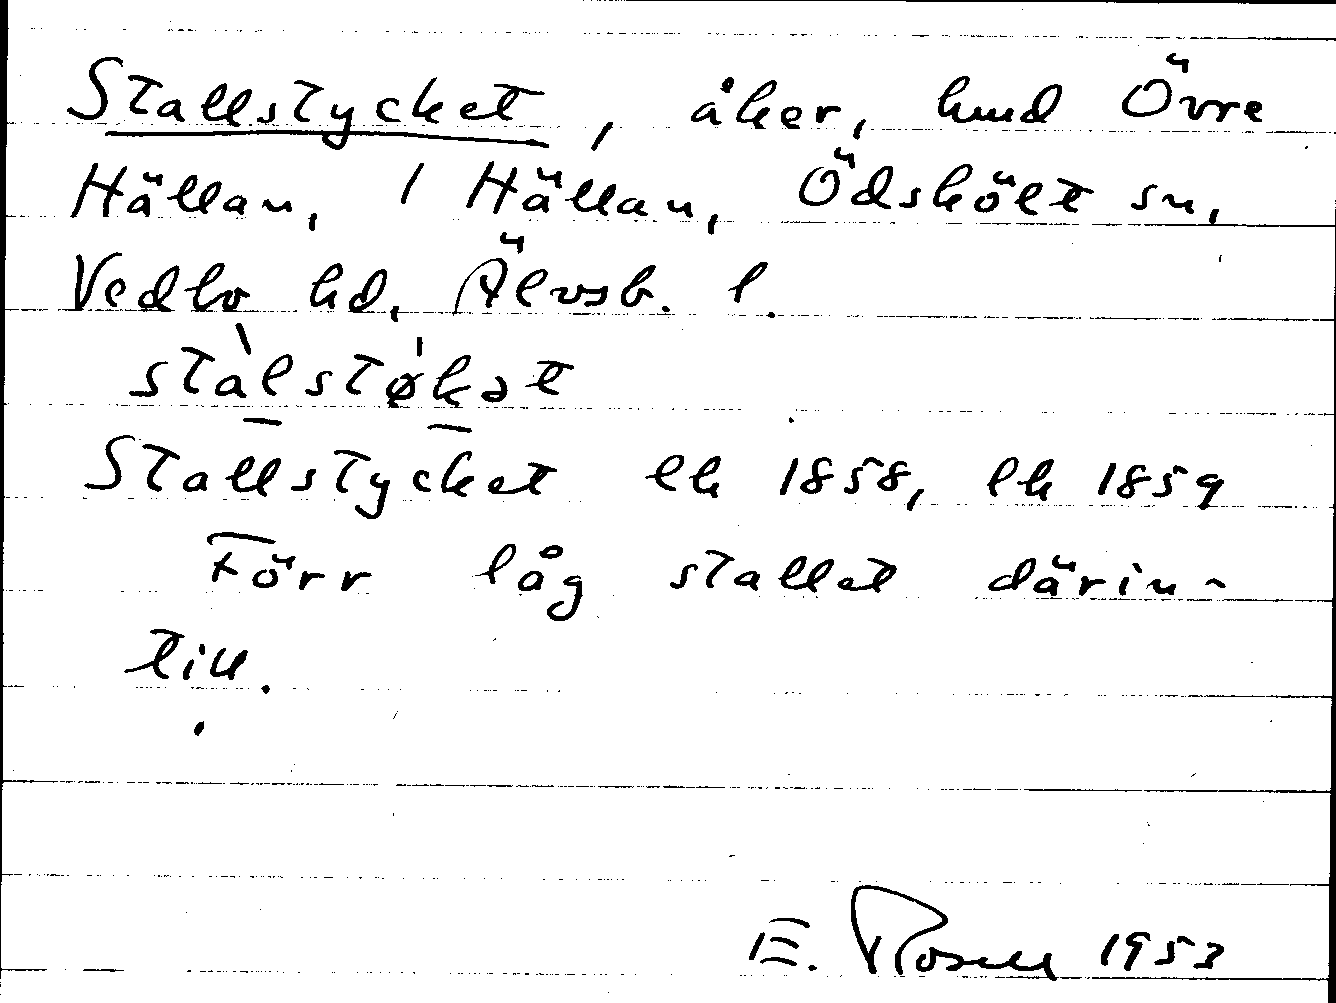 Stallstycket, åker, hmd Övre
Hällan, 1 Hällan, Ödskölt sn,
Vedbo hd, Älvsb. l.
stàlstø̍kət
Stallstycket lk 1858, lk 1859
Förr låg stallet därin-
till.
E. Rosell 1953